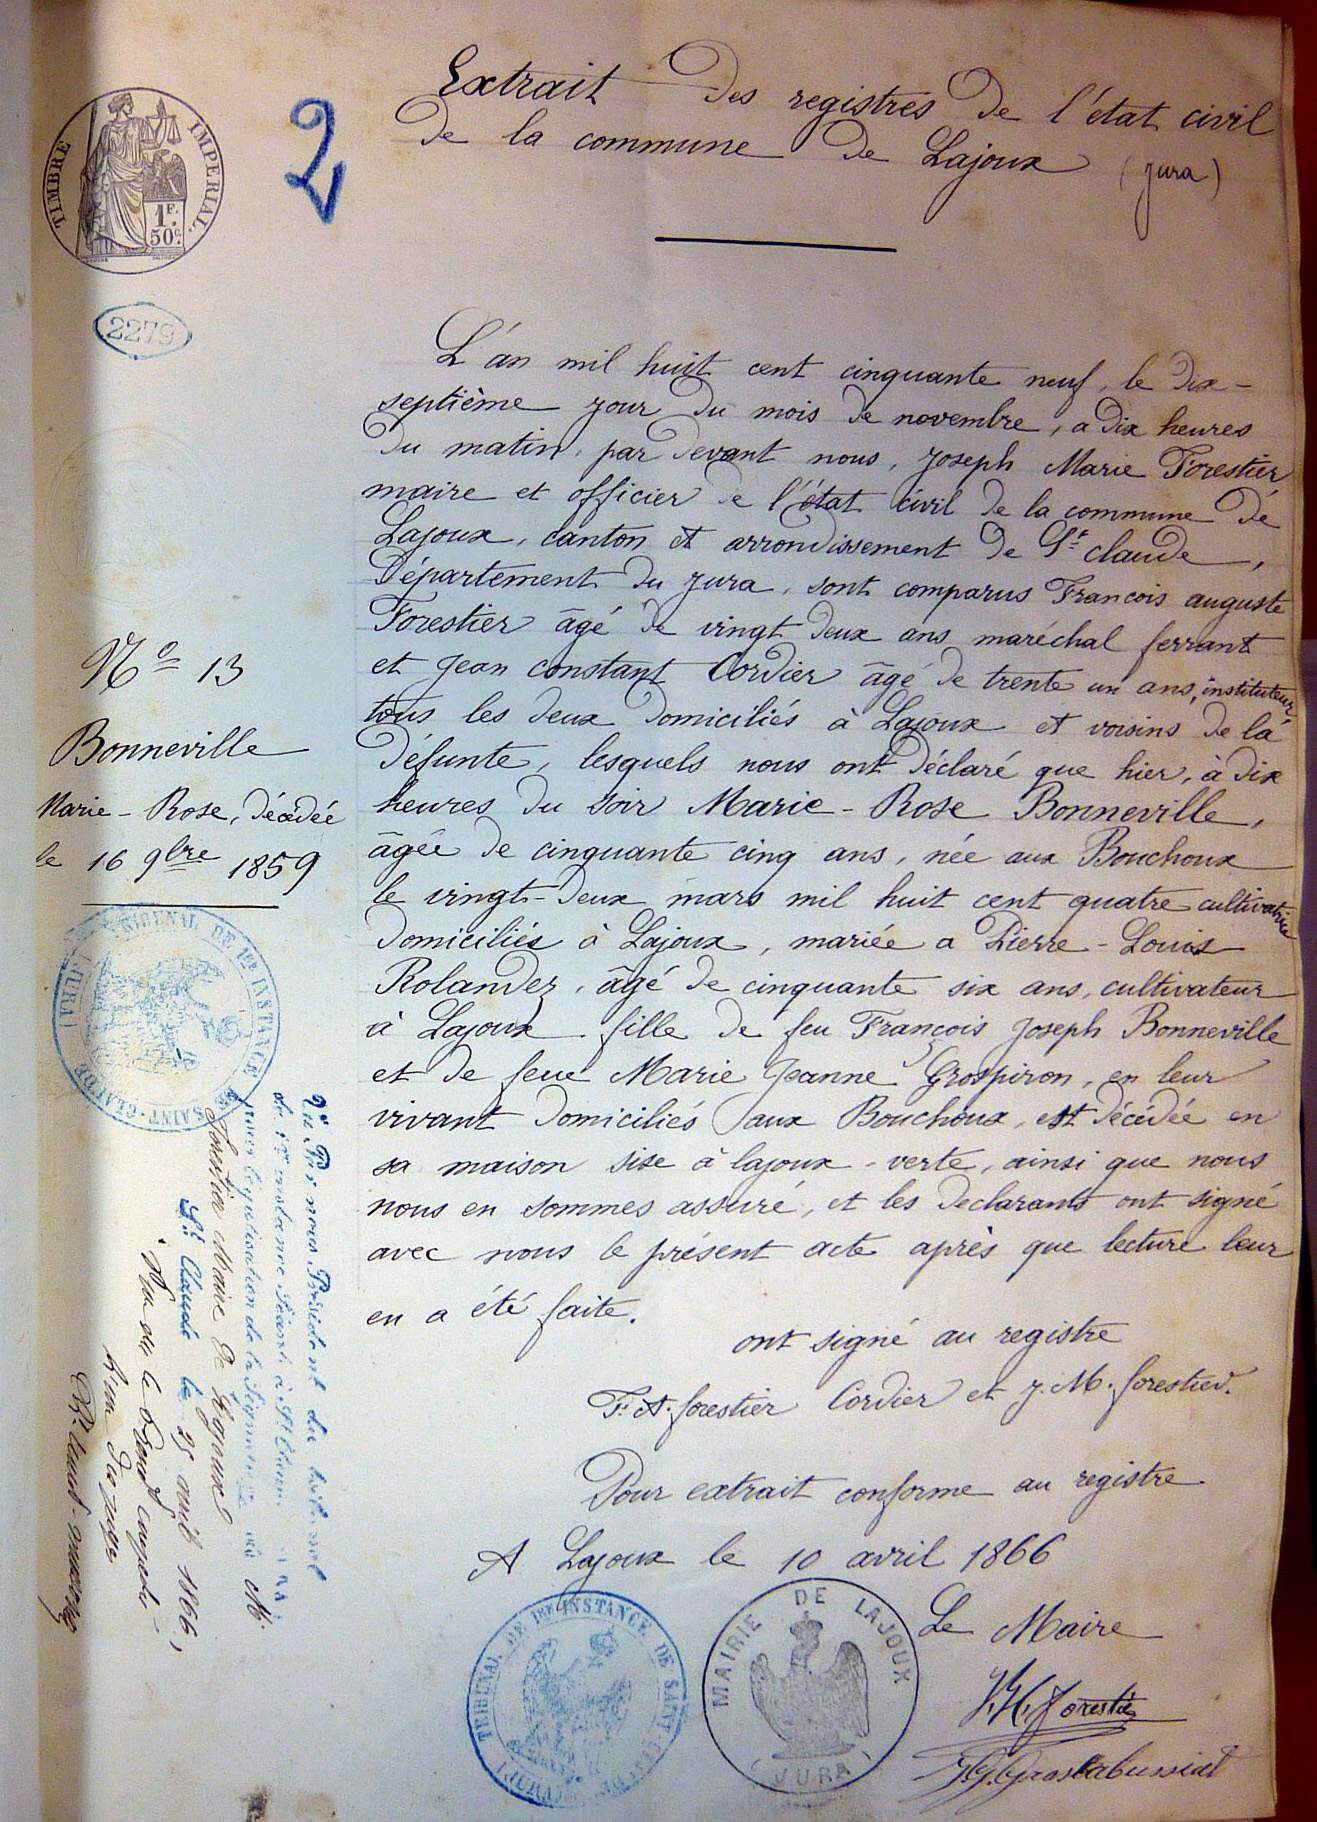 TIMBRE IMPERIAL.
1F.
50c.
2
2279
Extrait des registres de l'état civil
de la commune de Lajoux (Jura)
L'an mil huit cent cinquante neuf, le dix-
septième jour du mois de novembre, a dix heures
du matin, par devant nous, Joseph Marie Forestier
maire et officier de l'état civil de la commune de
Lajoux, canton et arrondissement de St claude,
Département du Jura, sont comparus Francois auguste
Forestier âgé de vingt deux ans maréchal ferrant
et Jean constant Cordier âgé de trente un ans, instituteur,
tous les deux domiciliés à Lajoux et voisins de la
défunte, lesquels nous ont déclaré que hier, à dix
heures du soir Marie-Rose Bonneville,
âgée de cinquante cinq ans, née aux Bouchoux
le vingt-deux mars mil huit cent quatre cultivatrice
domiciliés à Lajoux, mariée a Pierre-Louis
Rolandez, âgé de cinquante six ans, cultivateur
à Lajoux fille de feu François Joseph Bonneville
et de feue Marie Jeanne Grospiron, en leur
vivant domiciliés aux Bouchoux, est décédée en
sa maison sise à lajoux-verte, ainsi que nous
nous en sommes assuré, et les declarants ont signé
avec nous le présent acte après que lecture leur
en a été faite.
ont signé au registre
F. A. forestier Cordier et J. M. forestier.
Pour extrait conforme au registre
A Lajoux le 10 avril 1866
Le Maire
J. M. Forestier
No 13
Bonneville
Marie-Rose, décédée
le 16 9bre 1859
TRIBUNAL DE 1ERE INSTANCE DE SAINT-CLAUDE (JURA)
Vu Par nous Président du tribunal
de 1ère instance séant à St Claude
pour légalisation de la signature de M.
Forestier Maire de Lajoux
St Claude le 25 avril 1866,
TRIBUNAL DE 1ERE INSTANCE DE SAINT-CLAUDE (JURA)
MAIRIE DE LAJOUX
(JURA)